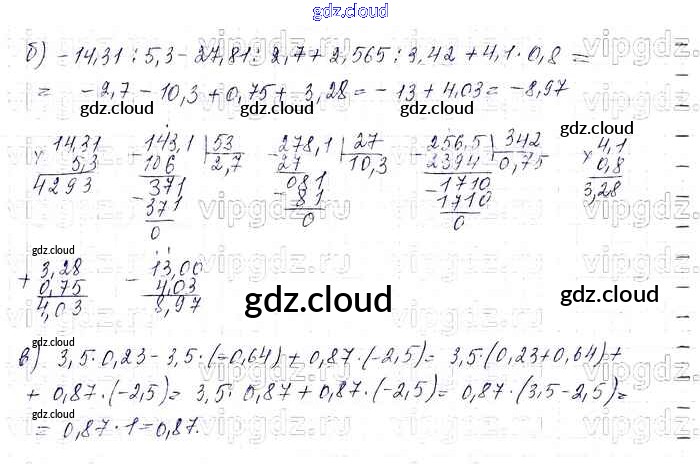 gdz.cloud
б) -14,31 : 5,3 - 27,81 : 2,7 + 2,565 : 3,42 + 4,1 · 0,8 =
= -2,7 - 10,3 + 0,75 + 3,28 = -13 + 4,03 = -8,97
gdz.cloud gdz.cloud gdz.cloud
x 14,31 - 143,1 | 53 - 278,1 | 27 - 256,5 | 342 x 4,1
5,3 106 2,7 27 10,3 2394 0,75 0,8
4293 371 081 - 1710 3,28
- 371 - 81 1710
0 0 0
gdz.cloud
+ 3,28 - 13,00
0,75 4,03
4,03 8,97
gdz.cloud gdz.cloud
gdz.cloud
в) 3,5 · 0,23 - 3,5 · (-0,64) + 0,87 · (-2,5) = 3,5 · (0,23 + 0,64) +
+ 0,87 · (-2,5) = 3,5 · 0,87 + 0,87 · (-2,5) = 0,87 · (3,5 - 2,5) =
gdz.cloud
= 0,87 · 1 = 0,87.
vipgdz.ru